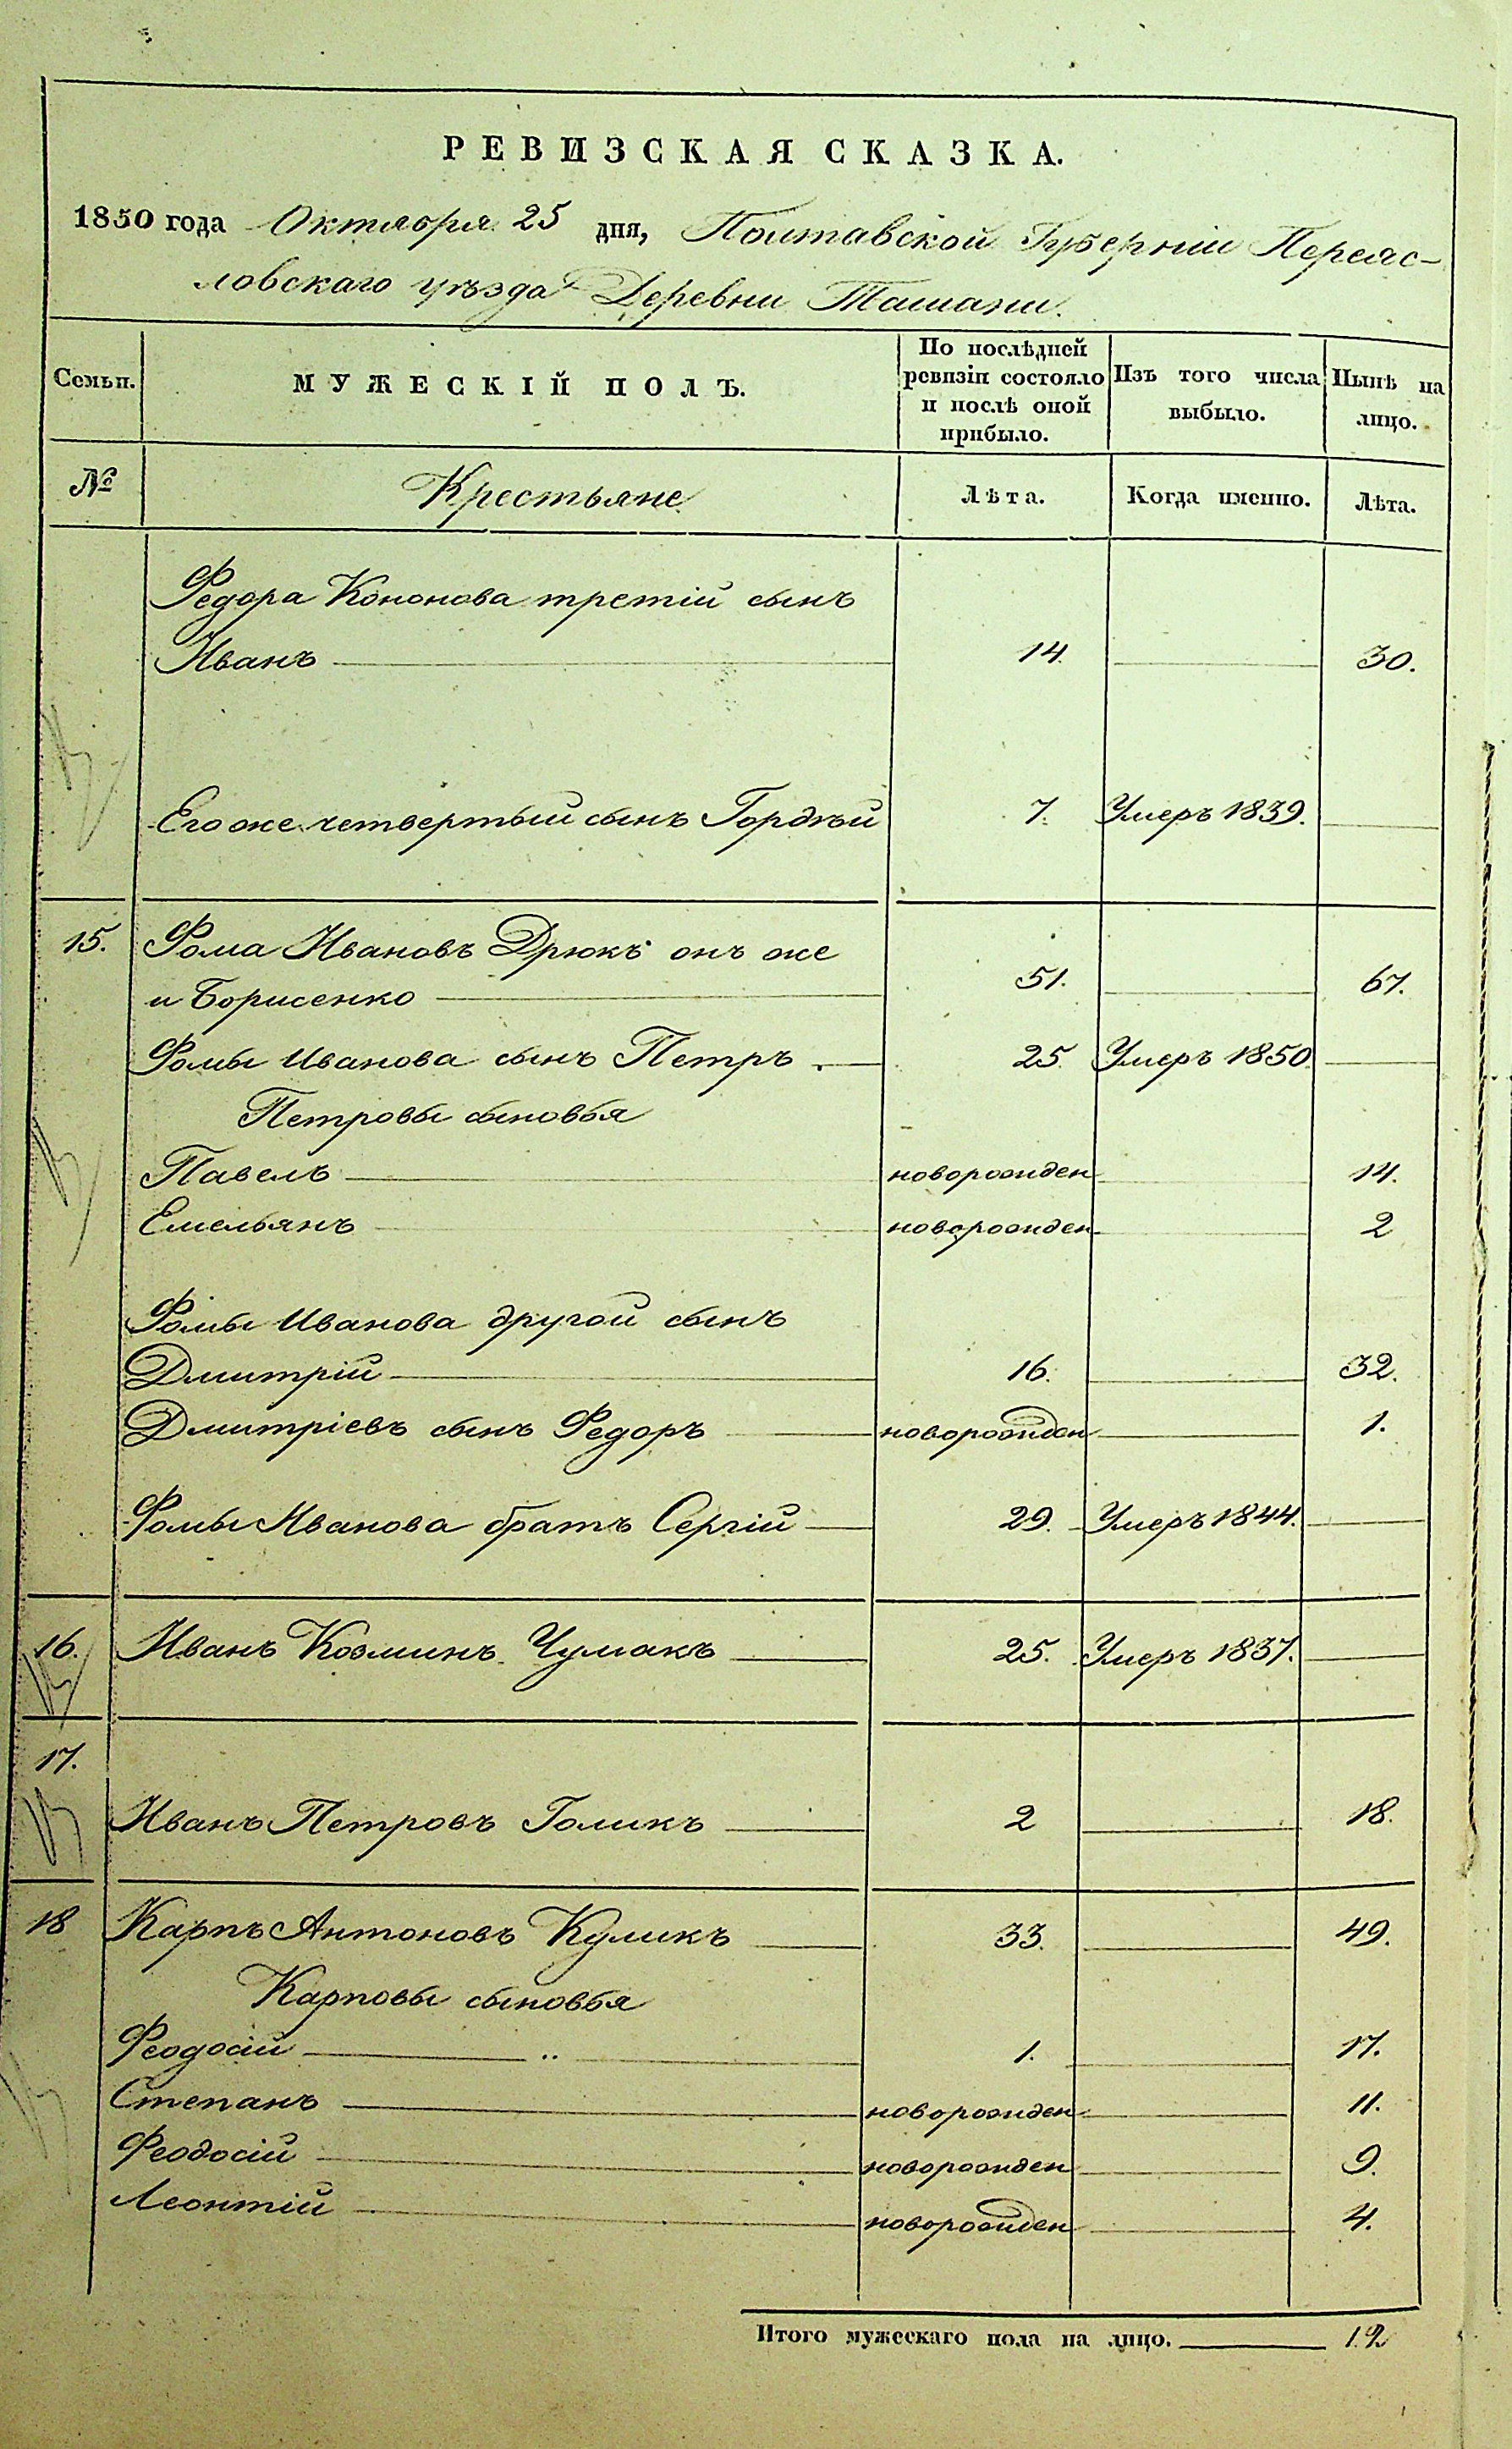 РЕВИЗСКАЯ СКАЗКА.
1850 года Октября 25 дня, Полтавской Губерніи Переяс-
ловскаго уѣзда Деревни Ташани.
Семьи.
МУЖЕСКІЙ ПОЛЪ.
По послѣдней
ревизіи состояло
и послѣ оной
прибыло.
Изъ того числа
выбыло.
Нынѣ на
лицо.
№ Крестьяне Лѣта. Когда именно. Лѣта.
Федора Кононова третій сынъ
Иванъ 14. 30.
Его же четвертый сынъ Гордѣй 7. Умеръ 1839.
15. Фома Ивановъ Дрюкъ онъ же
и Борисенко 51. 67.
Фомы Иванова сынъ Петръ 25. Умеръ 1850.
Петровы сыновья
Павелъ новорожден 14.
Емельянъ новорожден 2
Фомы Иванова другой сынъ
Дмитрій 16. 32.
Дмитріевъ сынъ Федоръ новорожден 1.
Фомы Иванова братъ Сергій 29. Умеръ 1844.
16. Иванъ Козминъ Чумакъ 25. Умеръ 1837.
17.
Иванъ Петровъ Голикъ 2 18.
18 Карпъ Антоновъ Куликъ 33. 49.
Карповы сыновья
Феодосій 1. 17.
Степанъ новорожден 11.
Феодосій новорожден 9.
Леонтій новорожден 4.
Итого мужескаго пола на лицо. 12